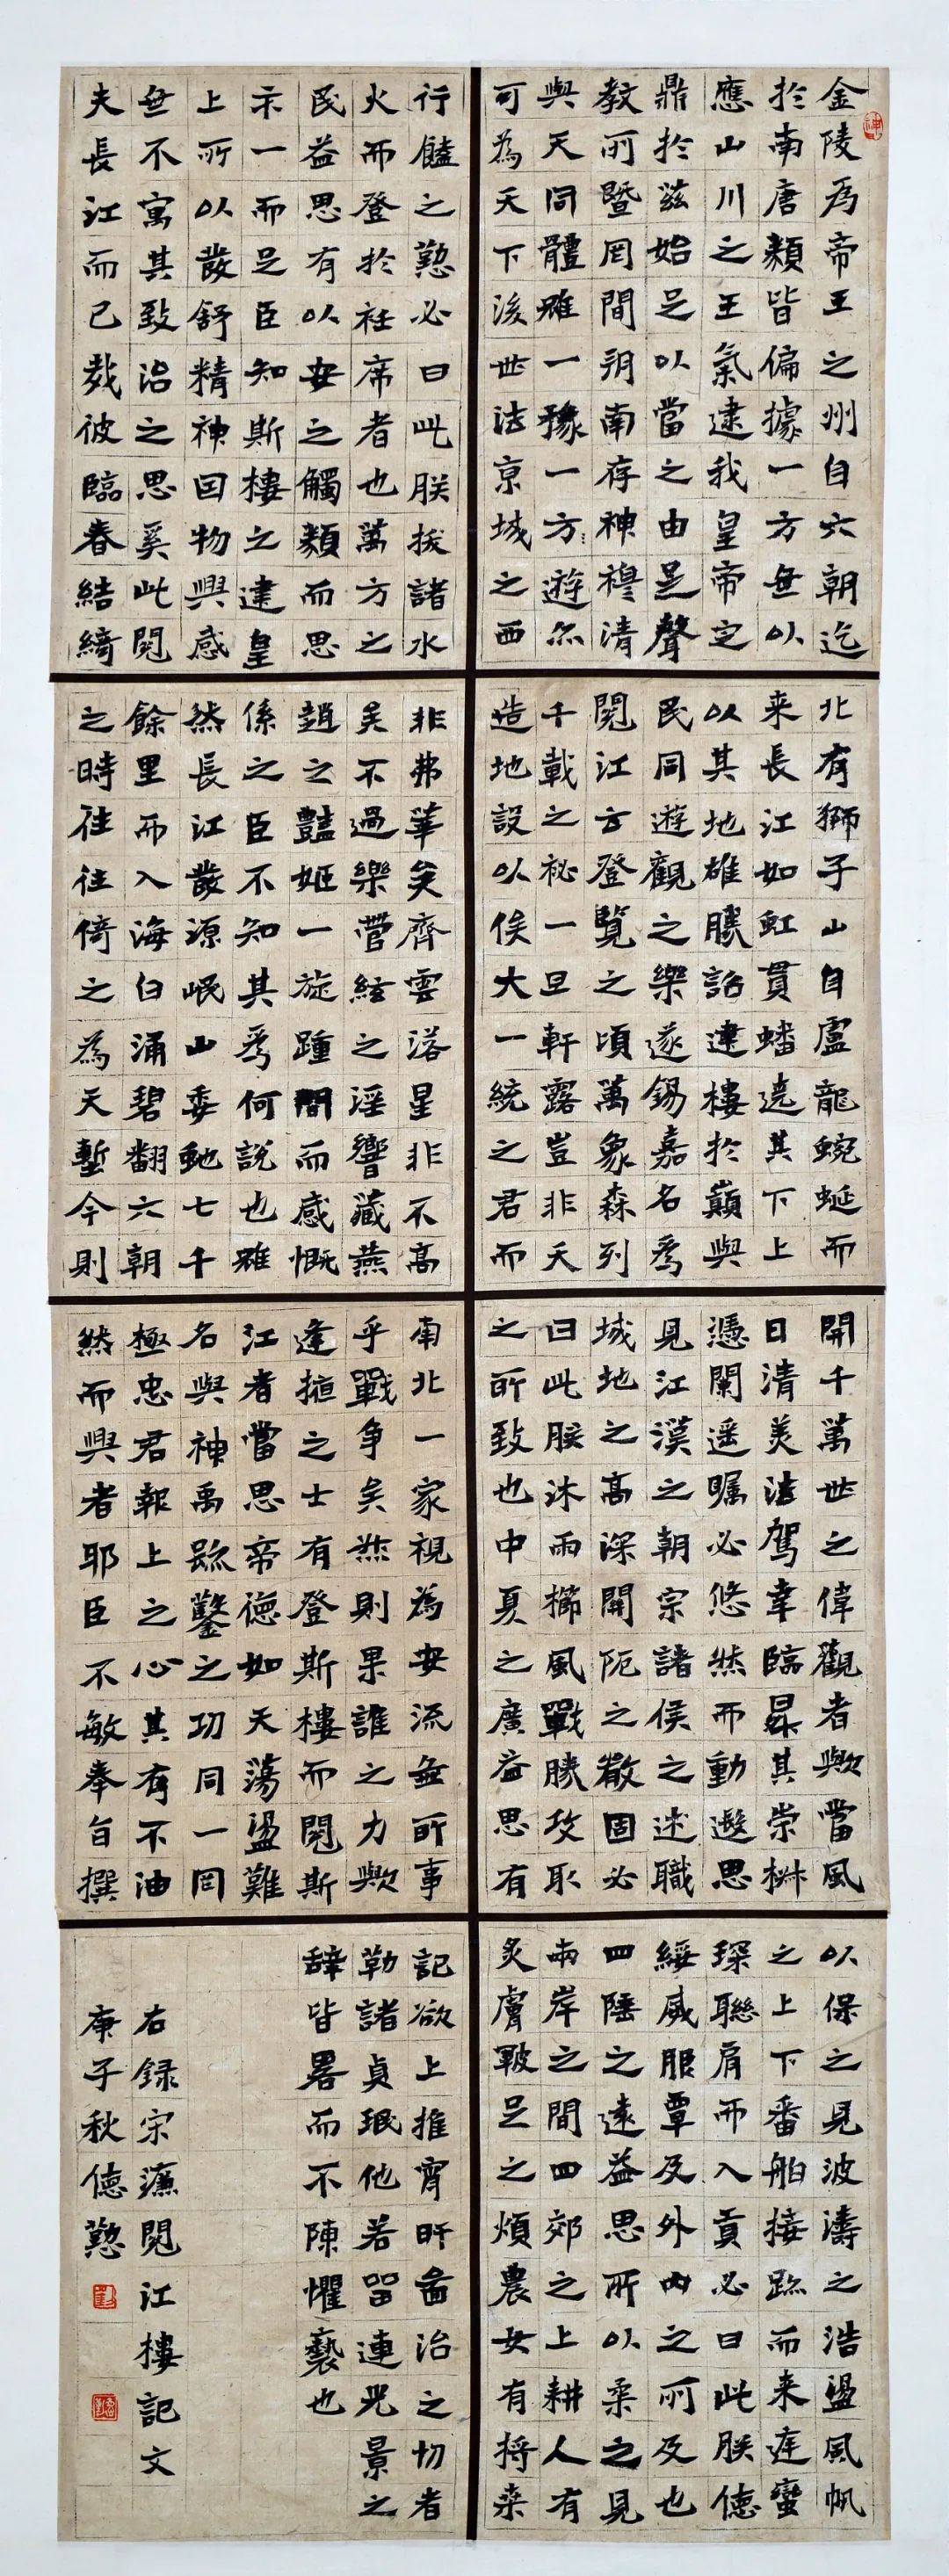 金陵為帝王之州自六朝迄
於南唐類皆偏據一方無以
應山川之王氣逮我皇帝定
鼎於茲始足以當之由是聲
教所暨罔間朔南存神穆清
與天同體雖一豫一方遊亦
可為天下後世法京城之西
北有獅子山自盧龍蜿蜒而
来長江如虹貫蟠遶其下上
以其地雄勝詔建樓於巔與
民同遊觀之樂遂錫嘉名為
閱江云登覽之頃萬象森列
千載之祕一旦軒露豈非天
造地設以俟大一統之君而
開千萬世之偉觀者歟當風
日清美法駕幸臨昇其崇椒
憑闌遥矚必悠然而動遐思
見江漢之朝宗諸侯之述職
城地之高深關阨之嚴固必
曰此朕沐雨櫛風戰勝攻取
之所致也中夏之廣益思有
以保之見波濤之浩盪風帆
之上下番舶接跡而来庭蠻
琛聯肩而入貢必曰此朕德
綏威服覃及外内之所及也
四陲之遠益思所以柔之見
兩岸之間四郊之上耕人有
炙膚皸足之煩農女有捋桑
行饁之勤必曰此朕拔諸水
火而登於衽席者也萬方之
民益思有以安之觸類而思
不一而足臣知斯樓之建皇
上所以發舒精神因物興感
無不寓其致治之思奚此閱
夫長江而已哉彼臨春結綺
非弗華矣齊雲落星非不高
矣不過樂管絃之淫響藏燕
趙之豔姬一旋踵間而感慨
係之臣不知其為何說也雖
然長江發源岷山委虵七千
餘里而入海白涌碧翻六朝
之時往往倚之為天塹今則
南北一家視為安流無所事
乎戰争矣然則果誰之力歟
逢掖之士有登斯樓而閱斯
江者當思帝德如天蕩盪難
名與神禹疏鑿之功同一罔
極忠君報上之心其有不油
然而興者耶臣不敏奉旨撰
記欲上推宵旰啚治之切者
勒諸貞珉他若留連光景之
辭皆畧而不陳懼褻也
右録宋濂閱江樓記文
庚子秋德懃